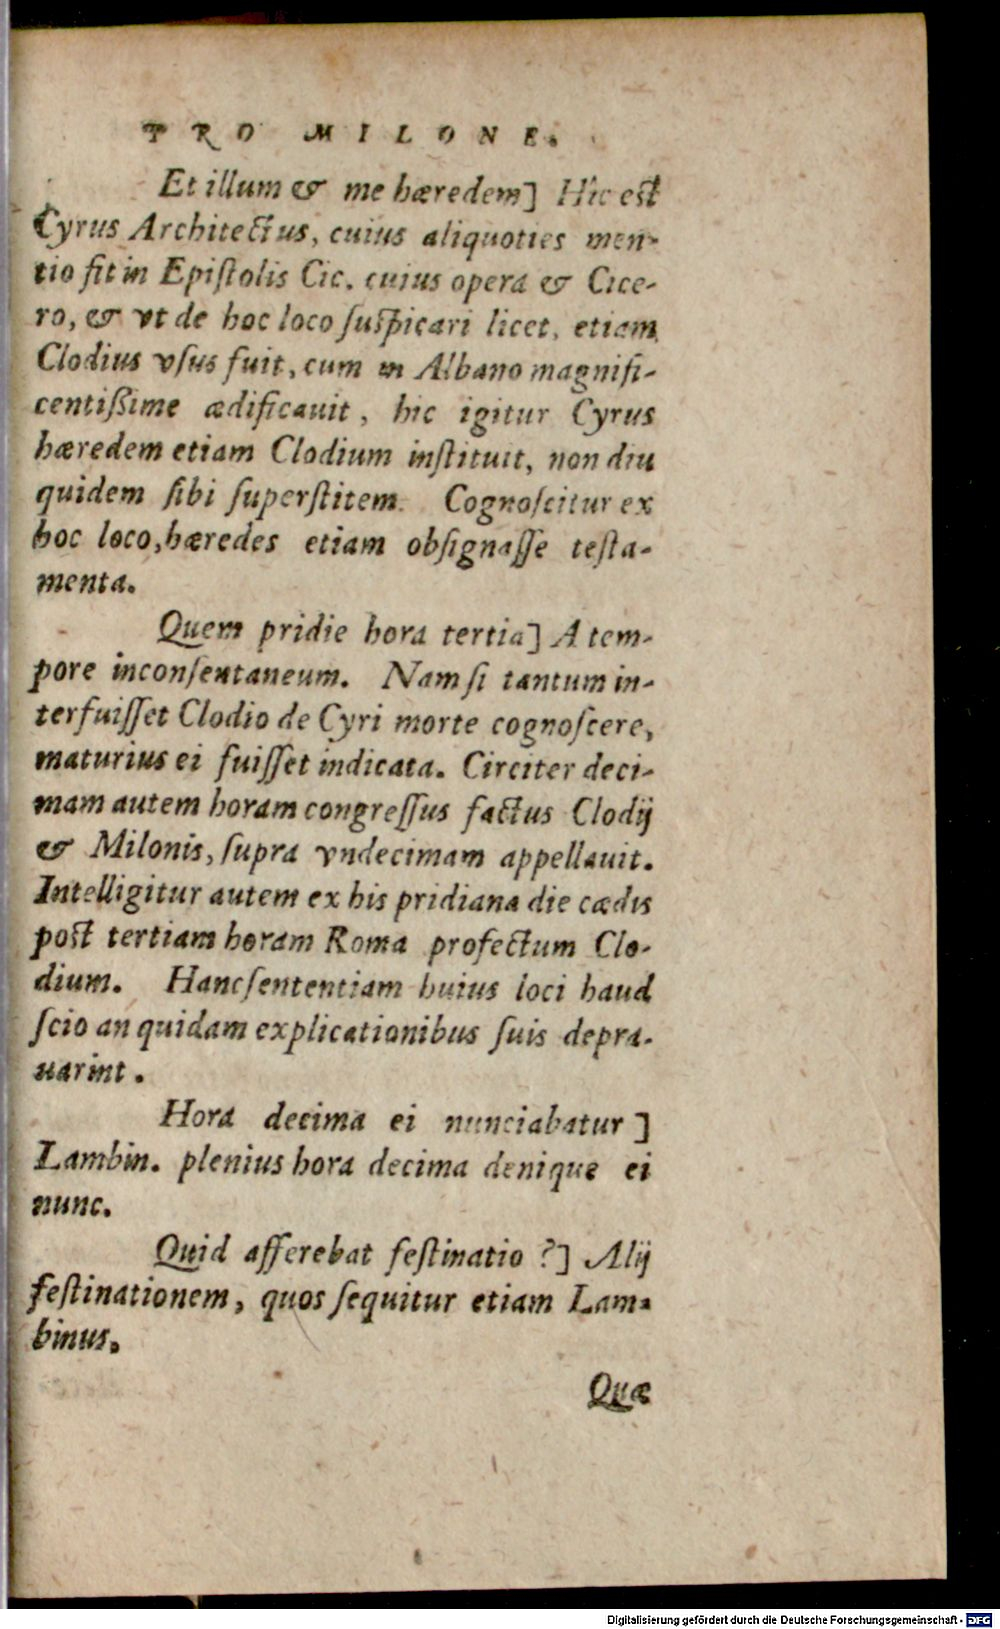 PRO MILONE.
Et illum & me hæredem] Hic est
Cyrus Architectus, cuius aliquoties men-
tio fit in Epiſtolis Cic. cuius opera & Cice-
ro, & vt de hoc loco ſuſpicari licet, etiam
Clodius vſus fuit, cum in Albano magnifi-
centißime ædificauit, hic igitur Cyrus
hæredem etiam Clodium inſtituit, non diu
quidem ſibi ſuperſtitem. Cognoſcitur ex
hoc loco, hæredes etiam obſignaſſe teſta-
menta.
Quem pridie hora tertia] A tem-
pore inconſentaneum. Nam ſi tantum in-
terfuiſſet Clodio de Cyri morte cognoſcere,
maturius ei fuiſſet indicata. Circiter deci-
mam autem horam congreſſus factus Clodij
& Milonis, ſupra vndecimam appellauit.
Intelligitur autem ex his pridiana die cædis
post tertiam horam Roma profectum Clo-
dium. Hanc ſententiam huius loci haud
ſcio an quidam explicationibus ſuis depra-
uarint.
Hora decima ei nunciabatur]
Lambin. plenius hora decima denique ei
nunc.
Quid afferebat feſtinatio?] Alij
feſtinationem, quos ſequitur etiam Lam-
binus.
Quæ
Digitalisierung gefördert durch die Deutsche Forschungsgemeinschaft - DFG